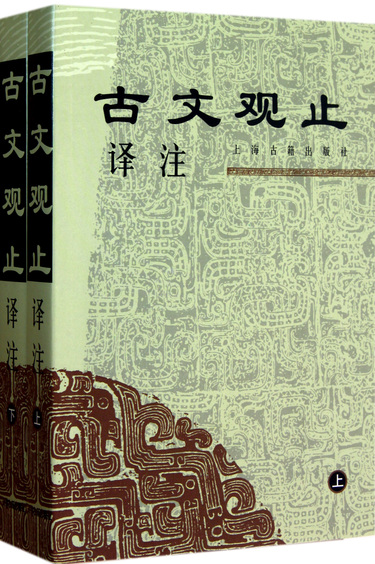 古文观止
译注
上海古籍出版社
上
古文观止
译注
上
古文观止
译注
下